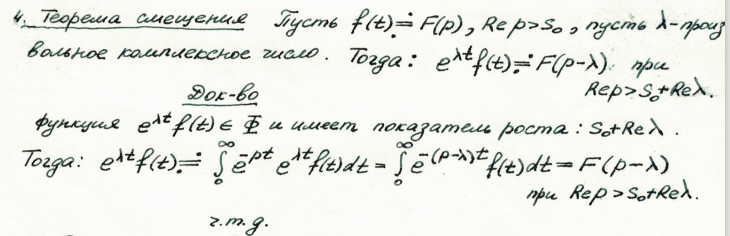 4. Теорема смещения Пусть f(t) ≓ F(p), Re p > S₀, пусть λ - произ
вольное комплексное число. Тогда: e^{λt} f(t) ≓ F(p-λ) при
Re p > S₀ + Re λ.
Док-во
Функция e^{λt} f(t) ∈ Φ и имеет показатель роста: S₀ + Re λ.
Тогда: e^{λt} f(t) ≓ ∫₀^∞ e^{-pt} e^{λt} f(t) dt = ∫₀^∞ e^{-(p-λ)t} f(t) dt = F(p-λ)
при Re p > S₀ + Re λ.
ч.т.д.